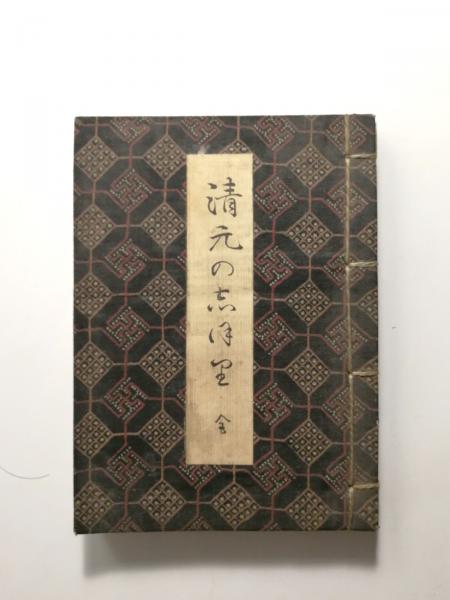 清元の志保里 全